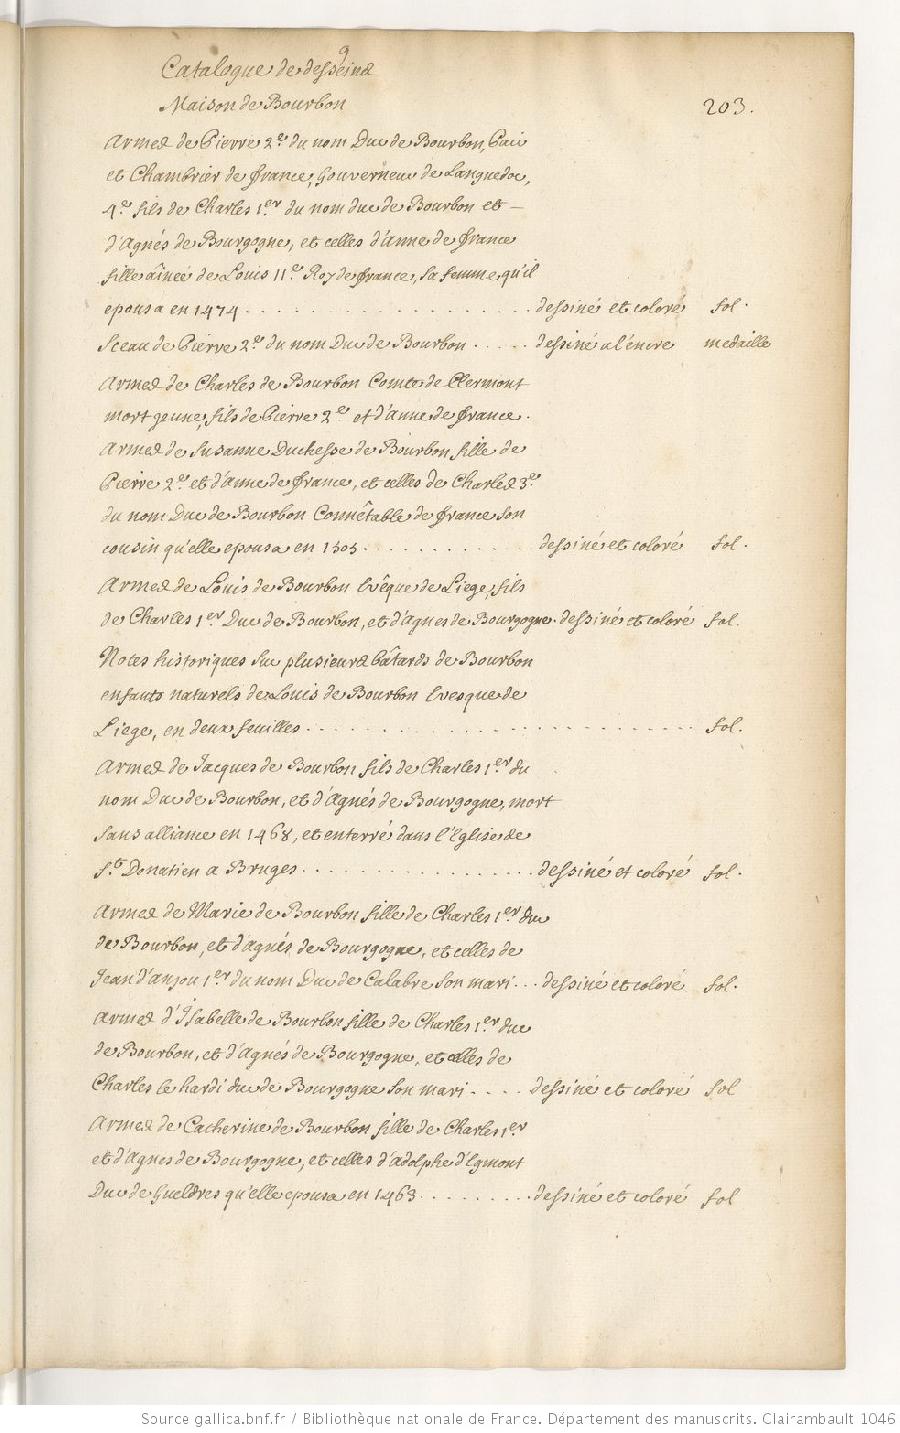 Catalogue de desseins
Maison de Bourbon
203.
Armes de Pierre 2.e du nom Duc de Bourbon, Pair
et Chambrier de france, Gouverneur de Languedoc,
4.e fils de Charles 1.er du nom duc de Bourbon et
d'Agnés de Bourgogne, et celles d'anne de france
fille aînée de Louis 11.e Roy de france, sa femme, qu'il
epousa en 1474 . . . . . . . . . . . . . . . . . . dessiné et coloré fol.
Sceau de Pierre 2.e du nom Duc de Bourbon . . . . . dessiné a l'encre medaille
Armes de Charles de Bourbon Comte de Clermont
mort jeune, fils de Pierre 2.e et d'anne de france.
Armes de Susanne Duchesse de Bourbon, fille de
Pierre 2.e et d'anne de france, et celles de Charles 3.e
du nom Duc de Bourbon Connêtable de france son
cousin qu'elle epousa en 1505 . . . . . . . . . . dessiné et coloré fol.
Armes de Louis de Bourbon Evêque de Liege, fils
de Charles 1.er Duc de Bourbon, et d'agnes de Bourgogne. dessiné et coloré fol.
Notes historiques sur plusieurs bâtards de Bourbon
enfants naturels de Louis de Bourbon Evesque de
Liege, en deux feuilles . . . . . . . . . . . . . . . . . . . . . . fol.
Armes de Jacques de Bourbon fils de Charles 1.er du
nom Duc de Bourbon, et d'Agnés de Bourgogne, mort
sans alliance en 1468, et enterré dans l'Eglise de
S.t Donatien a Bruges . . . . . . . . . . . . . . . dessiné et coloré fol.
Armes de Marie de Bourbon fille de Charles 1.er duc
de Bourbon, et d'agnés de Bourgogne, et celles de
Jean d'anjou 1.er du nom Duc de Calabre son mari . . . dessiné et coloré fol.
Armes d'Isabelle de Bourbon fille de Charles 1.er duc
de Bourbon, et d'agnés de Bourgogne, et celles de
Charles le hardi duc de Bourgogne son mari . . . . dessiné et coloré fol
Armes de Catherine de Bourbon fille de Charles 1.er
et d'agnes de Bourgogne, et celles d'adolphe d'Egmont
Duc de Gueldres qu'elle epousa en 1463 . . . . . . . . . dessiné et coloré fol
Source gallica.bnf.fr / Bibliothèque nationale de France. Département des manuscrits. Clairambault 1046